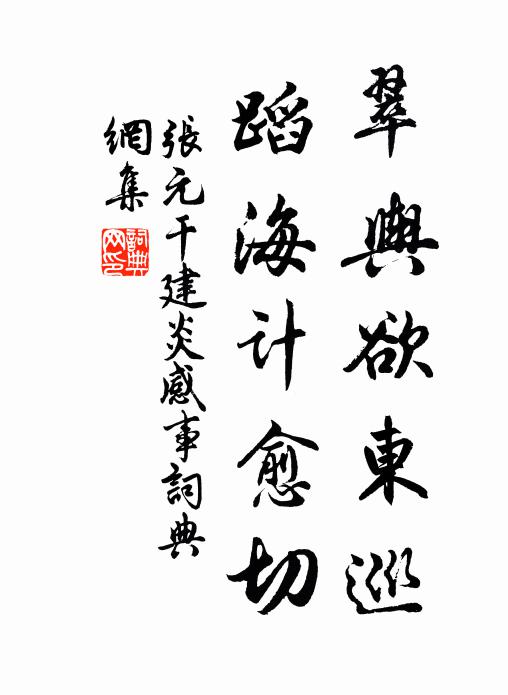 翠輿欲東巡
蹈海計愈切
張元干建炎感事詞典
網集
詞典
网印